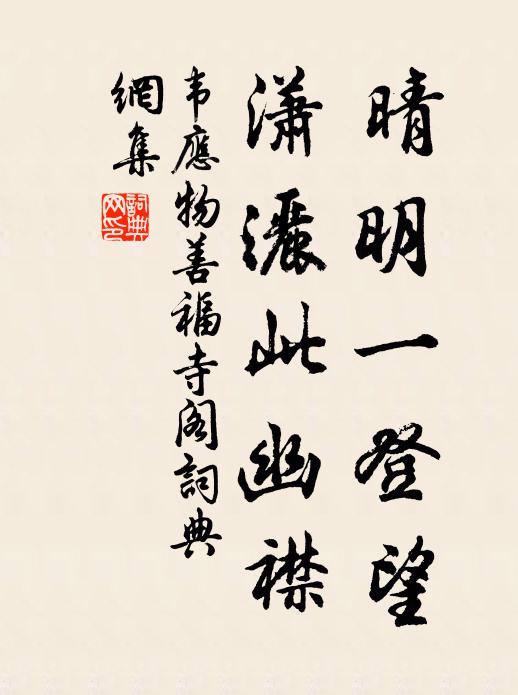 晴明一登望
瀟灑此幽襟
韦應物善福寺阁詞典
網集
詞典
网印